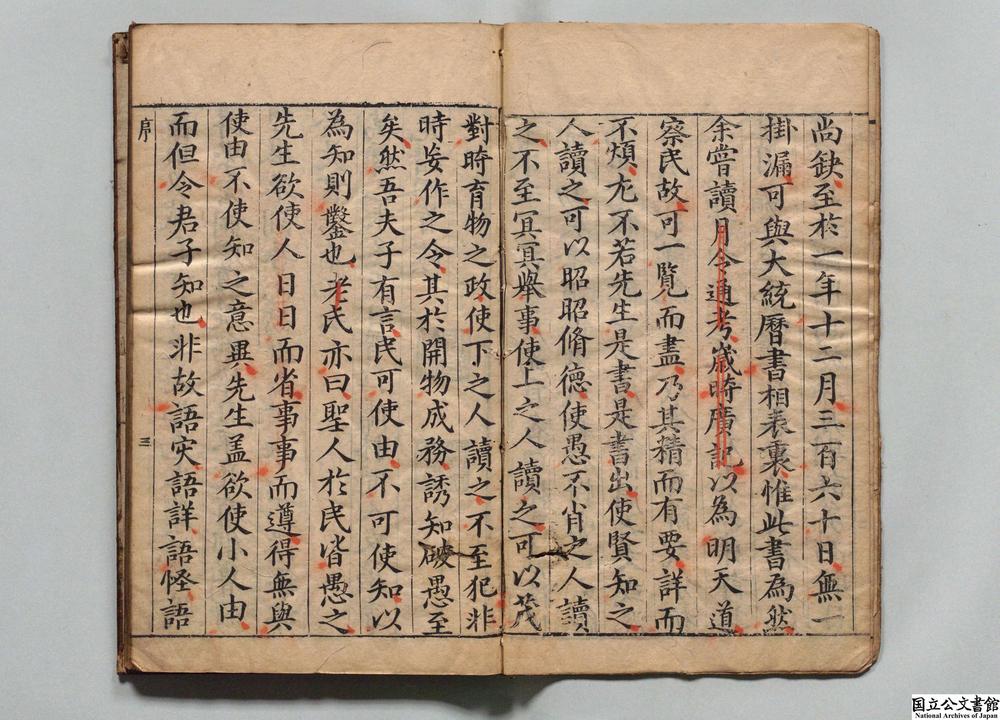 尚缺至於一年十二月三百六十日無一
掛漏可與大統曆書相表裏惟此書為然
余嘗讀月令通考歲時廣記以為明天道
察民故可一覽而盡乃其精而有要詳而
不煩尤不若先生是書是書出使賢知之
人讀之可以昭昭脩德使愚不肖之人讀
之不至冥冥舉事使上之人讀之可以茂
對時育物之政使下之人讀之不至犯非
時妄作之令其於開物成務誘知破愚至
矣然吾夫子有言民可使由不可使知以
為知則鑿也老氏亦曰聖人於民皆愚之
先生欲使人日日而省事事而遵得無與
使由不使知之意異先生盖欲使小人由
而但令君子知也非故語灾語詳語怪語
序
三
国立公文書館
National Archives of Japan